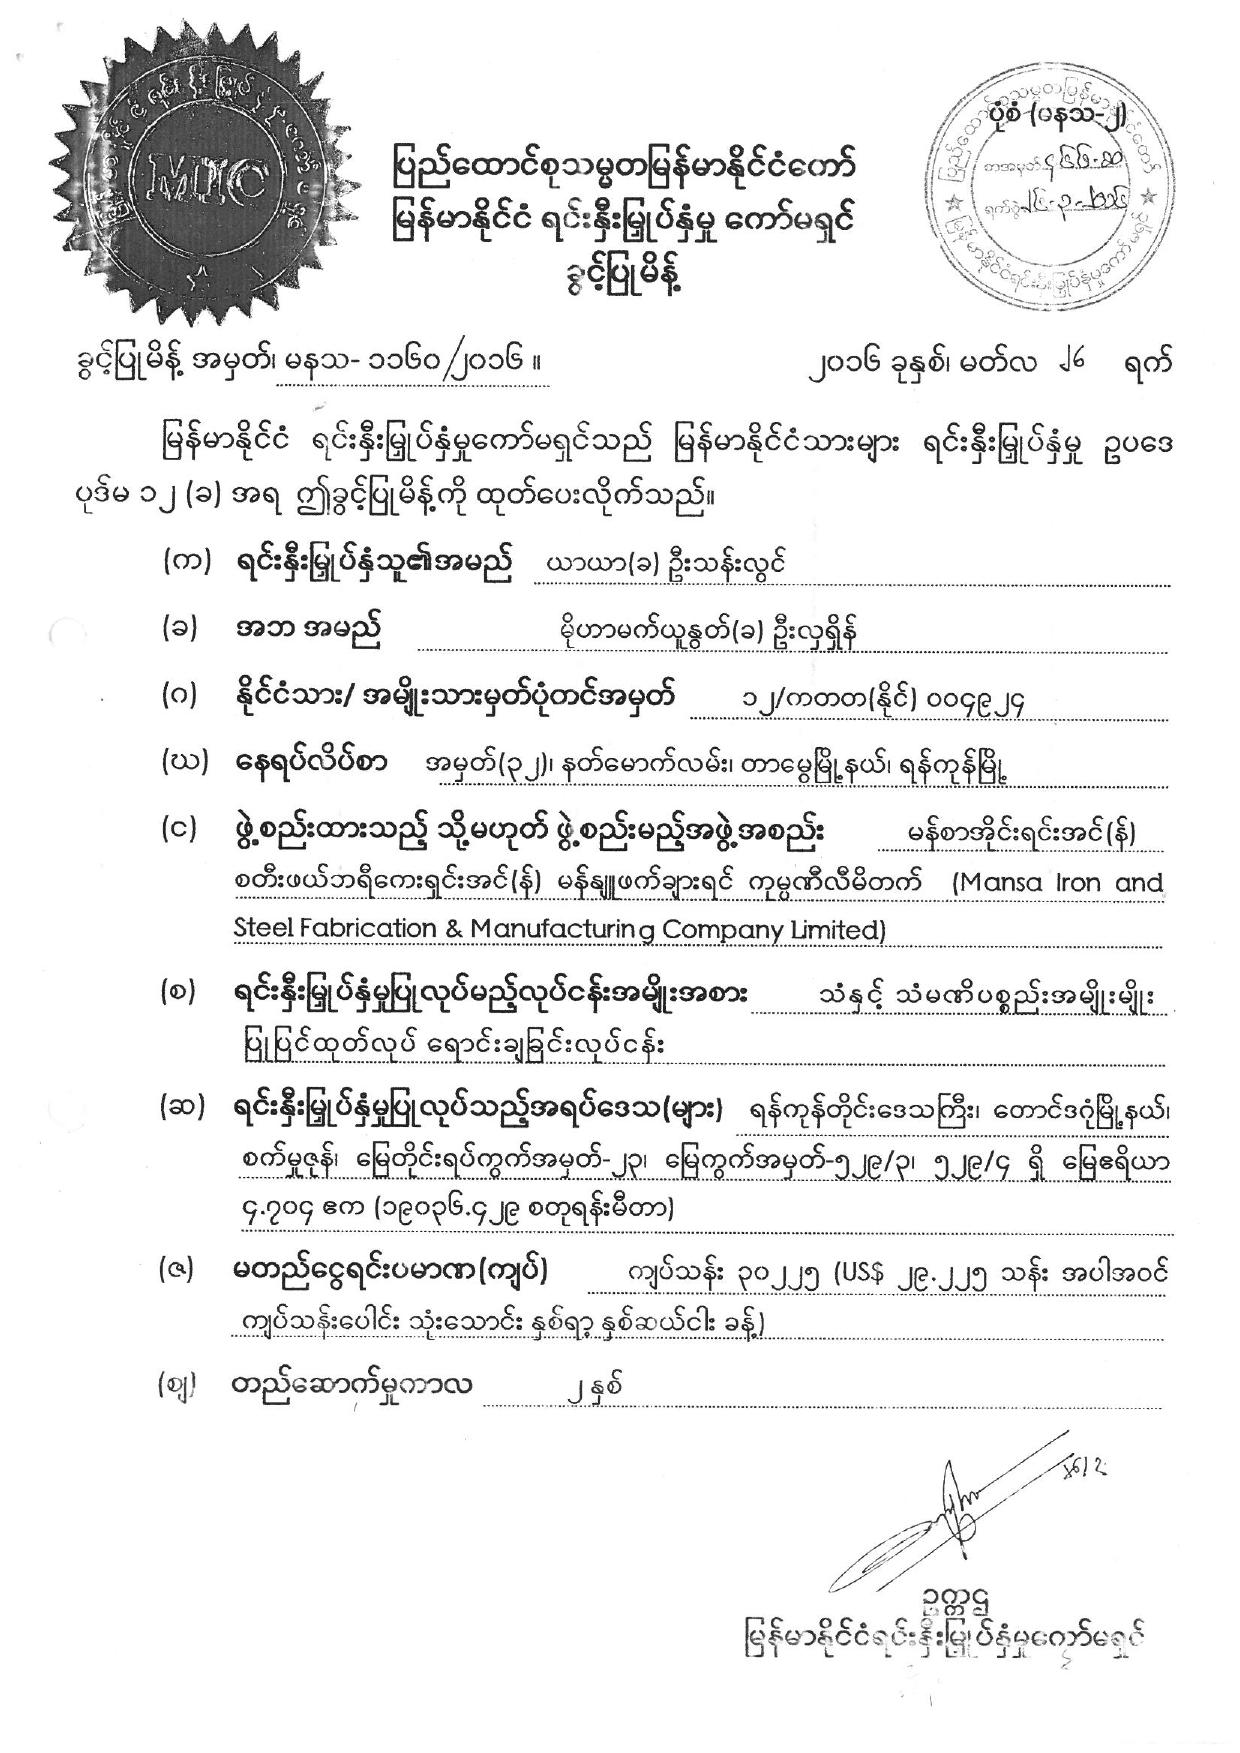 MIC
ပုံစံ (မနသ-၂)
ပြည်ထောင်စုသမ္မတမြန်မာနိုင်ငံတော်
မြန်မာနိုင်ငံ ရင်းနှီးမြှုပ်နှံမှု ကော်မရှင်
ခွင့်ပြုမိန့်
ခွင့်ပြုမိန့် အမှတ်၊ မနသ- ၁၁၆၀/၂၀၁၆ ။ ၂၀၁၆ ခုနှစ်၊ မတ်လ ၂၆ ရက်
မြန်မာနိုင်ငံ ရင်းနှီးမြှုပ်နှံမှုကော်မရှင်သည် မြန်မာနိုင်ငံသားများ ရင်းနှီးမြှုပ်နှံမှု ဥပဒေ
ပုဒ်မ ၁၂ (ခ) အရ ဤခွင့်ပြုမိန့်ကို ထုတ်ပေးလိုက်သည်။
(က) ရင်းနှီးမြှုပ်နှံသူ၏အမည် ယာယာ(ခ) ဦးသန်းလွင်
(ခ) အဘ အမည် မိုဟာမက်ယူနွတ်(ခ) ဦးလှရှိန်
(ဂ) နိုင်ငံသား/ အမျိုးသားမှတ်ပုံတင်အမှတ် ၁၂/ကတတ(နိုင်) ၀၀၄၉၂၄
(ဃ) နေရပ်လိပ်စာ အမှတ်(၃၂)၊ နတ်မောက်လမ်း၊ တာမွေမြို့နယ်၊ ရန်ကုန်မြို့
(င) ဖွဲ့စည်းထားသည့် သို့မဟုတ် ဖွဲ့စည်းမည့်အဖွဲ့အစည်း မန်စာအိုင်းရင်းအင်(န်)
စတီးဖယ်ဘရီကေးရှင်းအင်(န်) မန်နျူဖက်ချားရင် ကုမ္ပဏီလီမိတက် (Mansa Iron and
Steel Fabrication & Manufacturing Company Limited)
(စ) ရင်းနှီးမြှုပ်နှံမှုပြုလုပ်မည့်လုပ်ငန်းအမျိုးအစား သံနှင့် သံမဏိပစ္စည်းအမျိုးမျိုး
ပြုပြင်ထုတ်လုပ် ရောင်းချခြင်းလုပ်ငန်း
(ဆ) ရင်းနှီးမြှုပ်နှံမှုပြုလုပ်သည့်အရပ်ဒေသ(များ) ရန်ကုန်တိုင်းဒေသကြီး၊ တောင်ဒဂုံမြို့နယ်၊
စက်မှုဇုန်၊ မြေတိုင်းရပ်ကွက်အမှတ်-၂၃၊ မြေကွက်အမှတ်-၅၂၉/၃၊ ၅၂၉/၄ ရှိ မြေဧရိယာ
၄.၇၀၄ ဧက (၁၉၀၃၆.၄၂၉ စတုရန်းမီတာ)
(ဇ) မတည်ငွေရင်းပမာဏ(ကျပ်) ကျပ်သန်း ၃၀၂၂၅ (US$ ၂၉.၂၂၅ သန်း အပါအဝင်
ကျပ်သန်းပေါင်း သုံးသောင်း နှစ်ရာ့ နှစ်ဆယ်ငါး ခန့်)
(ဈ) တည်ဆောက်မှုကာလ ၂ နှစ်
ဥက္ကဋ္ဌ
မြန်မာနိုင်ငံရင်းနှီးမြှုပ်နှံမှုကော်မရှင်